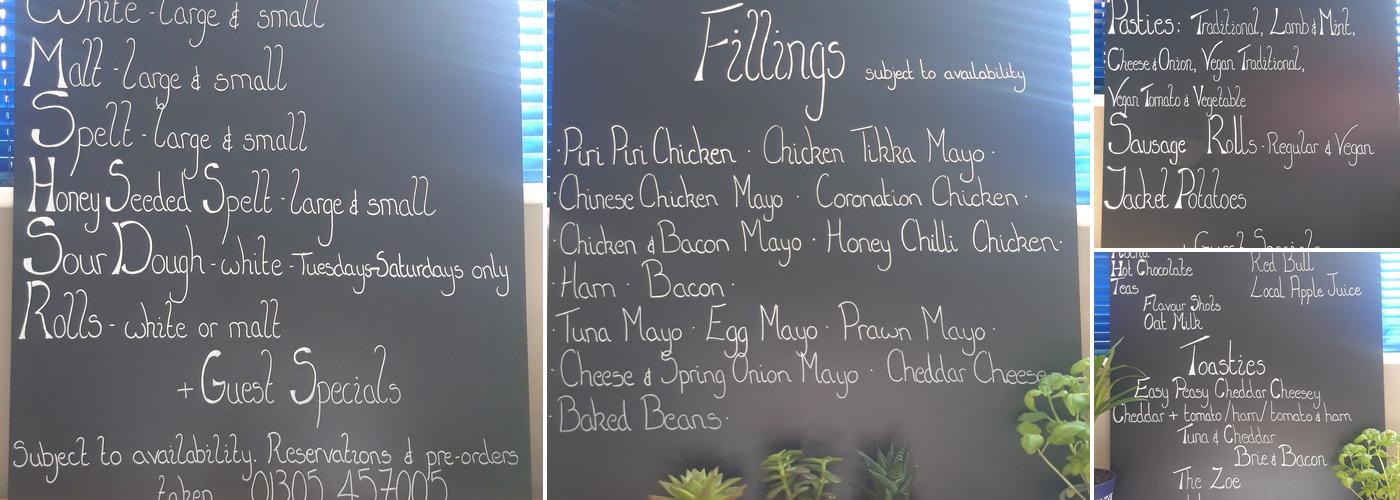 White - large & small
Malt - large & small
Spelt - large & small
Honey Seeded Spelt - large & small
Sour Dough - white - Tuesdays-Saturdays only
Rolls - white or malt
+ Guest Specials
Subject to availability. Reservations & pre-orders
taken 01305 457005
Fillings subject to availability
· Piri Piri Chicken · Chicken Tikka Mayo ·
· Chinese Chicken Mayo · Coronation Chicken ·
· Chicken & Bacon Mayo · Honey Chilli Chicken ·
· Ham · Bacon ·
· Tuna Mayo · Egg Mayo · Prawn Mayo ·
· Cheese & Spring Onion Mayo · Cheddar Cheese
· Baked Beans ·
Pasties: Traditional, Lamb & Mint,
Cheese & Onion, Vegan Traditional,
Vegan Tomato & Vegetable
Sausage Rolls - Regular & Vegan
Jacket Potatoes
+ Guest Specials
Mocha
Hot Chocolate Red Bull
Teas Local Apple Juice
Flavour Shots
Oat Milk
Toasties
Easy Peasy Cheddar Cheesey
Cheddar + tomato/ham/tomato & ham
Tuna & Cheddar
Brie & Bacon
The Zoe